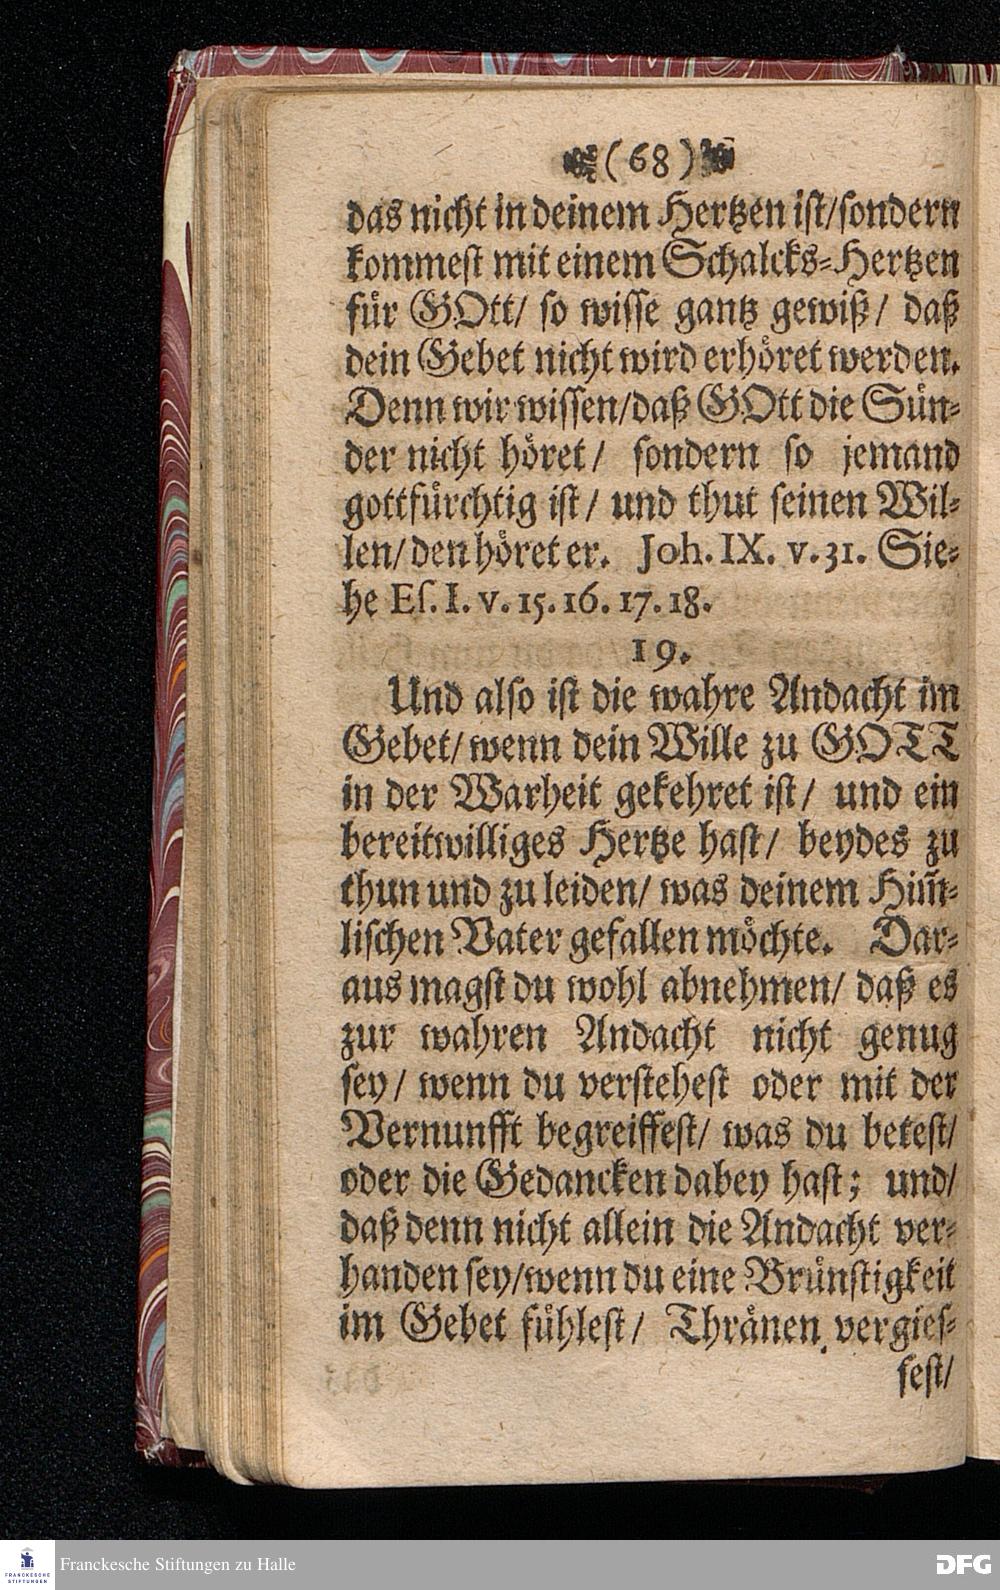 (68)
das nicht in deinem Hertzen ist/sondern
kommest mit einem Schalcks-Hertzen
für GOtt/ so wisse gantz gewiß/ daß
dein Gebet nicht wird erhöret werden.
Denn wir wissen/daß GOtt die Sün-
der nicht höret/ sondern so jemand
gottfürchtig ist/ und thut seinen Wil-
len/ den höret er. Joh. IX. v. 31. Sie-
he Es. I. v. 15. 16. 17. 18.
19.
Und also ist die wahre Andacht im
Gebet/ wenn dein Wille zu GOTT
in der Warheit gekehret ist/ und ein
bereitwilliges Hertze hast/ beydes zu
thun und zu leiden/ was deinem Him̃-
lischen Vater gefallen möchte. Dar-
aus magst du wohl abnehmen/ daß es
zur wahren Andacht nicht genug
sey/ wenn du verstehest oder mit der
Vernunfft begreiffest/ was du betest/
oder die Gedancken dabey hast; und/
daß denn nicht allein die Andacht ver-
handen sey/wenn du eine Brünstigkeit
im Gebet fühlest/ Thränen vergies-
sest/
Franckesche Stiftungen zu Halle
FRANCKESCHE
STIFTUNGEN
DFG